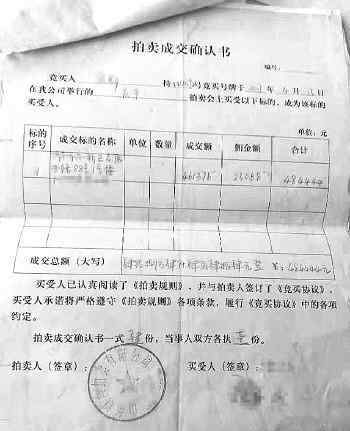 拍卖成交确认书
编号:
竞买人 持 号竞买号牌于 年 4 月 日
在我公司举行的 拍卖会上买受以下标的，成为该标的
买受人。
单位：元
标的序号 成交标的名称 单位 数量 成交额 佣金额 合计
461375 23068 484444
成交总额（大写） 肆拾捌万肆仟肆佰肆拾肆元整 ¥：484444元
买受人已认真阅读了《拍卖规则》，并与拍卖人签订了《竞买协议》，
买受人承诺将严格遵守《拍卖规则》各项条款，履行《竞买协议》中的各项
约定。
拍卖成交确认书一式肆份，当事人双方各执壹份。
拍卖人（签章）： 买受人（签章）：